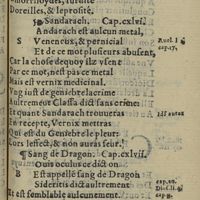 Doreilles, & leprosité.
Sandarach. Cap.cxlvi.
SAndarach est aulcun metal,
Veneneux, & pernicial
Et de ce mot plusieurs abusent,
Car la chose dequoy ilz vsent
Par ce mot, nest pas ce metal
Mais est vernix medicinal.
Vng iust de geniebre larcrime
Aultremēt Classa dict sans crime:
Et quant Sandarach trouuerras
En recepte, Vernix mettras
Qui est du Geniebre le pleur:
Cors leffect, & non auras seur.
¶ Sang de Dragon. Cap. cxlvii.
Ous oculus ce dict on
Est appellé sang de Dragon
Sideritis dict aultrement
Et est semblable aulcunement.